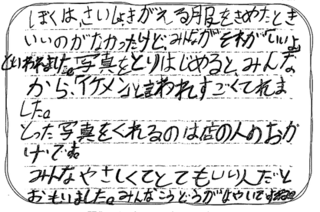 ぼくは、さいしょきがえる服をきめたとき
いいのがなかったけど、みんながそれが「いいよ」
といわれました。写真をとりはじめると、みんな
から、イケメンと言われすごくてれま
した。
とった写真をくれるのは店の人のおか
げです。
みんなやさしくてとてもいい人だと
おもいました。みんなこうどうがはやいです